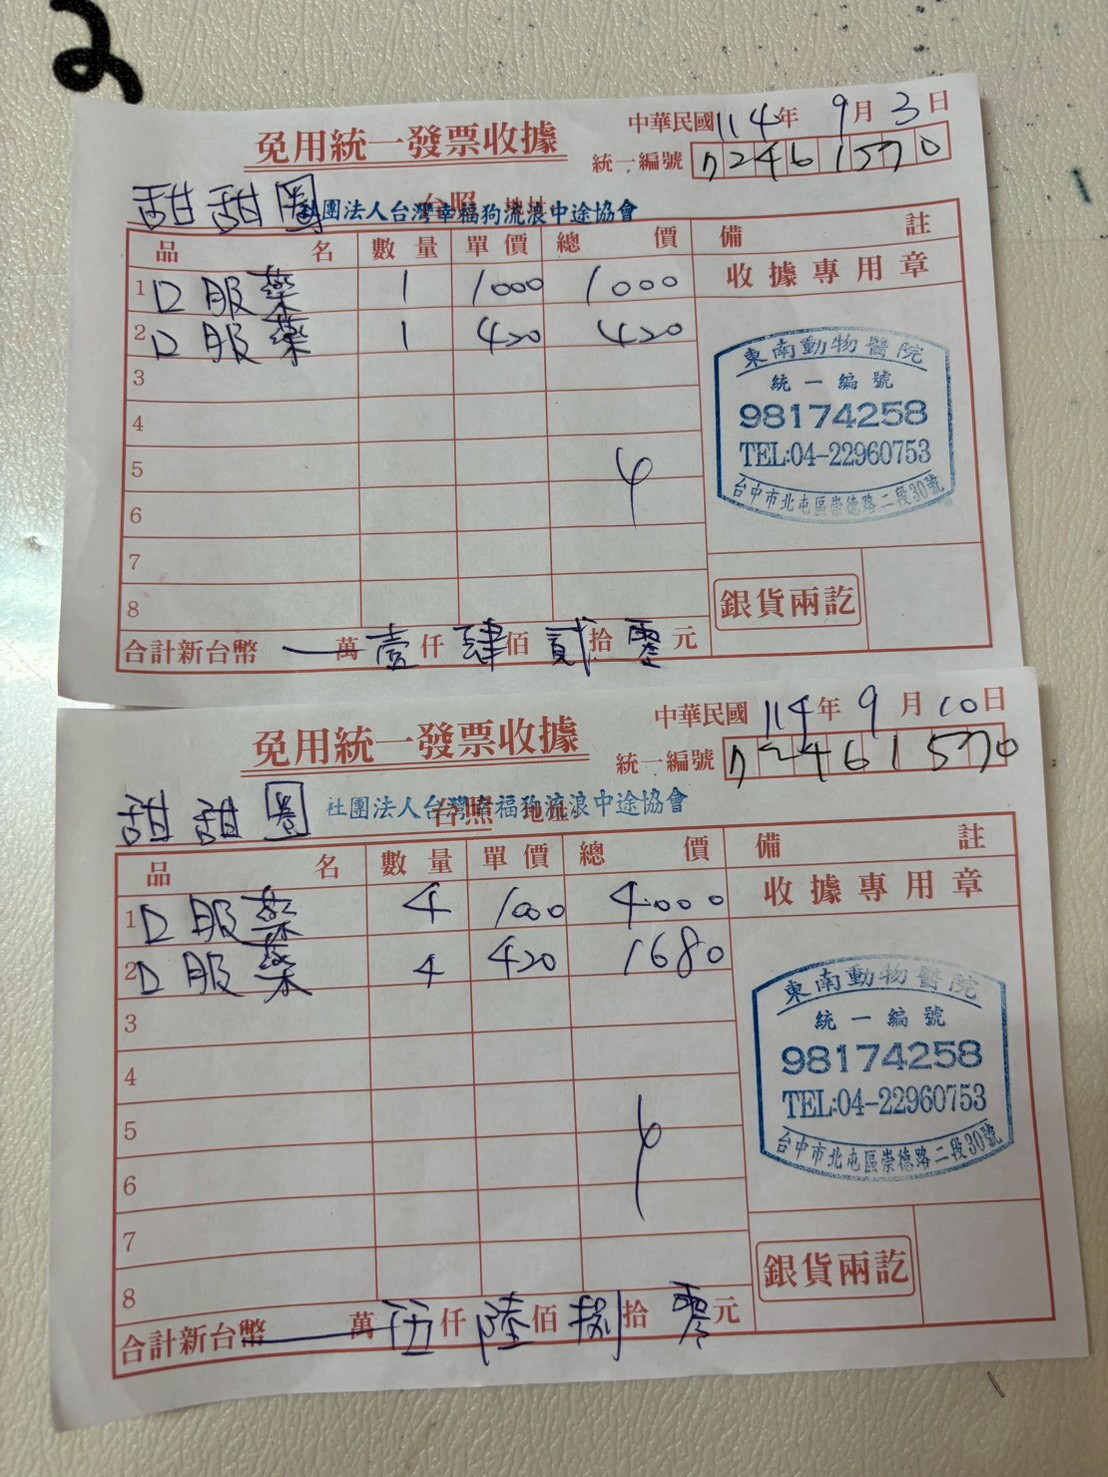 2
免用統一發票收據
中華民國114年 9月 3日
統一編號 72461570
甜甜圈 社團法人台灣幸福狗流浪中途協會
台照 地址
品名 數量 單價 總價 備註
1 口服藥 1 1000 1000 收據專用章
2 口服藥 1 420 420
3
4
5
6
7
8
東南動物醫院
統一編號
98174258
TEL:04-22960753
台中市北屯區崇德路二段30號
銀貨兩訖
合計新台幣 萬壹仟肆佰貳拾零元
免用統一發票收據
中華民國114年 9月 10日
統一編號 72461570
甜甜圈 社團法人台灣幸福狗流浪中途協會
台照 地址
品名 數量 單價 總價 備註
1 口服藥 4 1000 4000 收據專用章
2 口服藥 4 420 1680
3
4
5
6
7
8
東南動物醫院
統一編號
98174258
TEL:04-22960753
台中市北屯區崇德路二段30號
銀貨兩訖
合計新台幣 萬伍仟陸佰捌拾零元